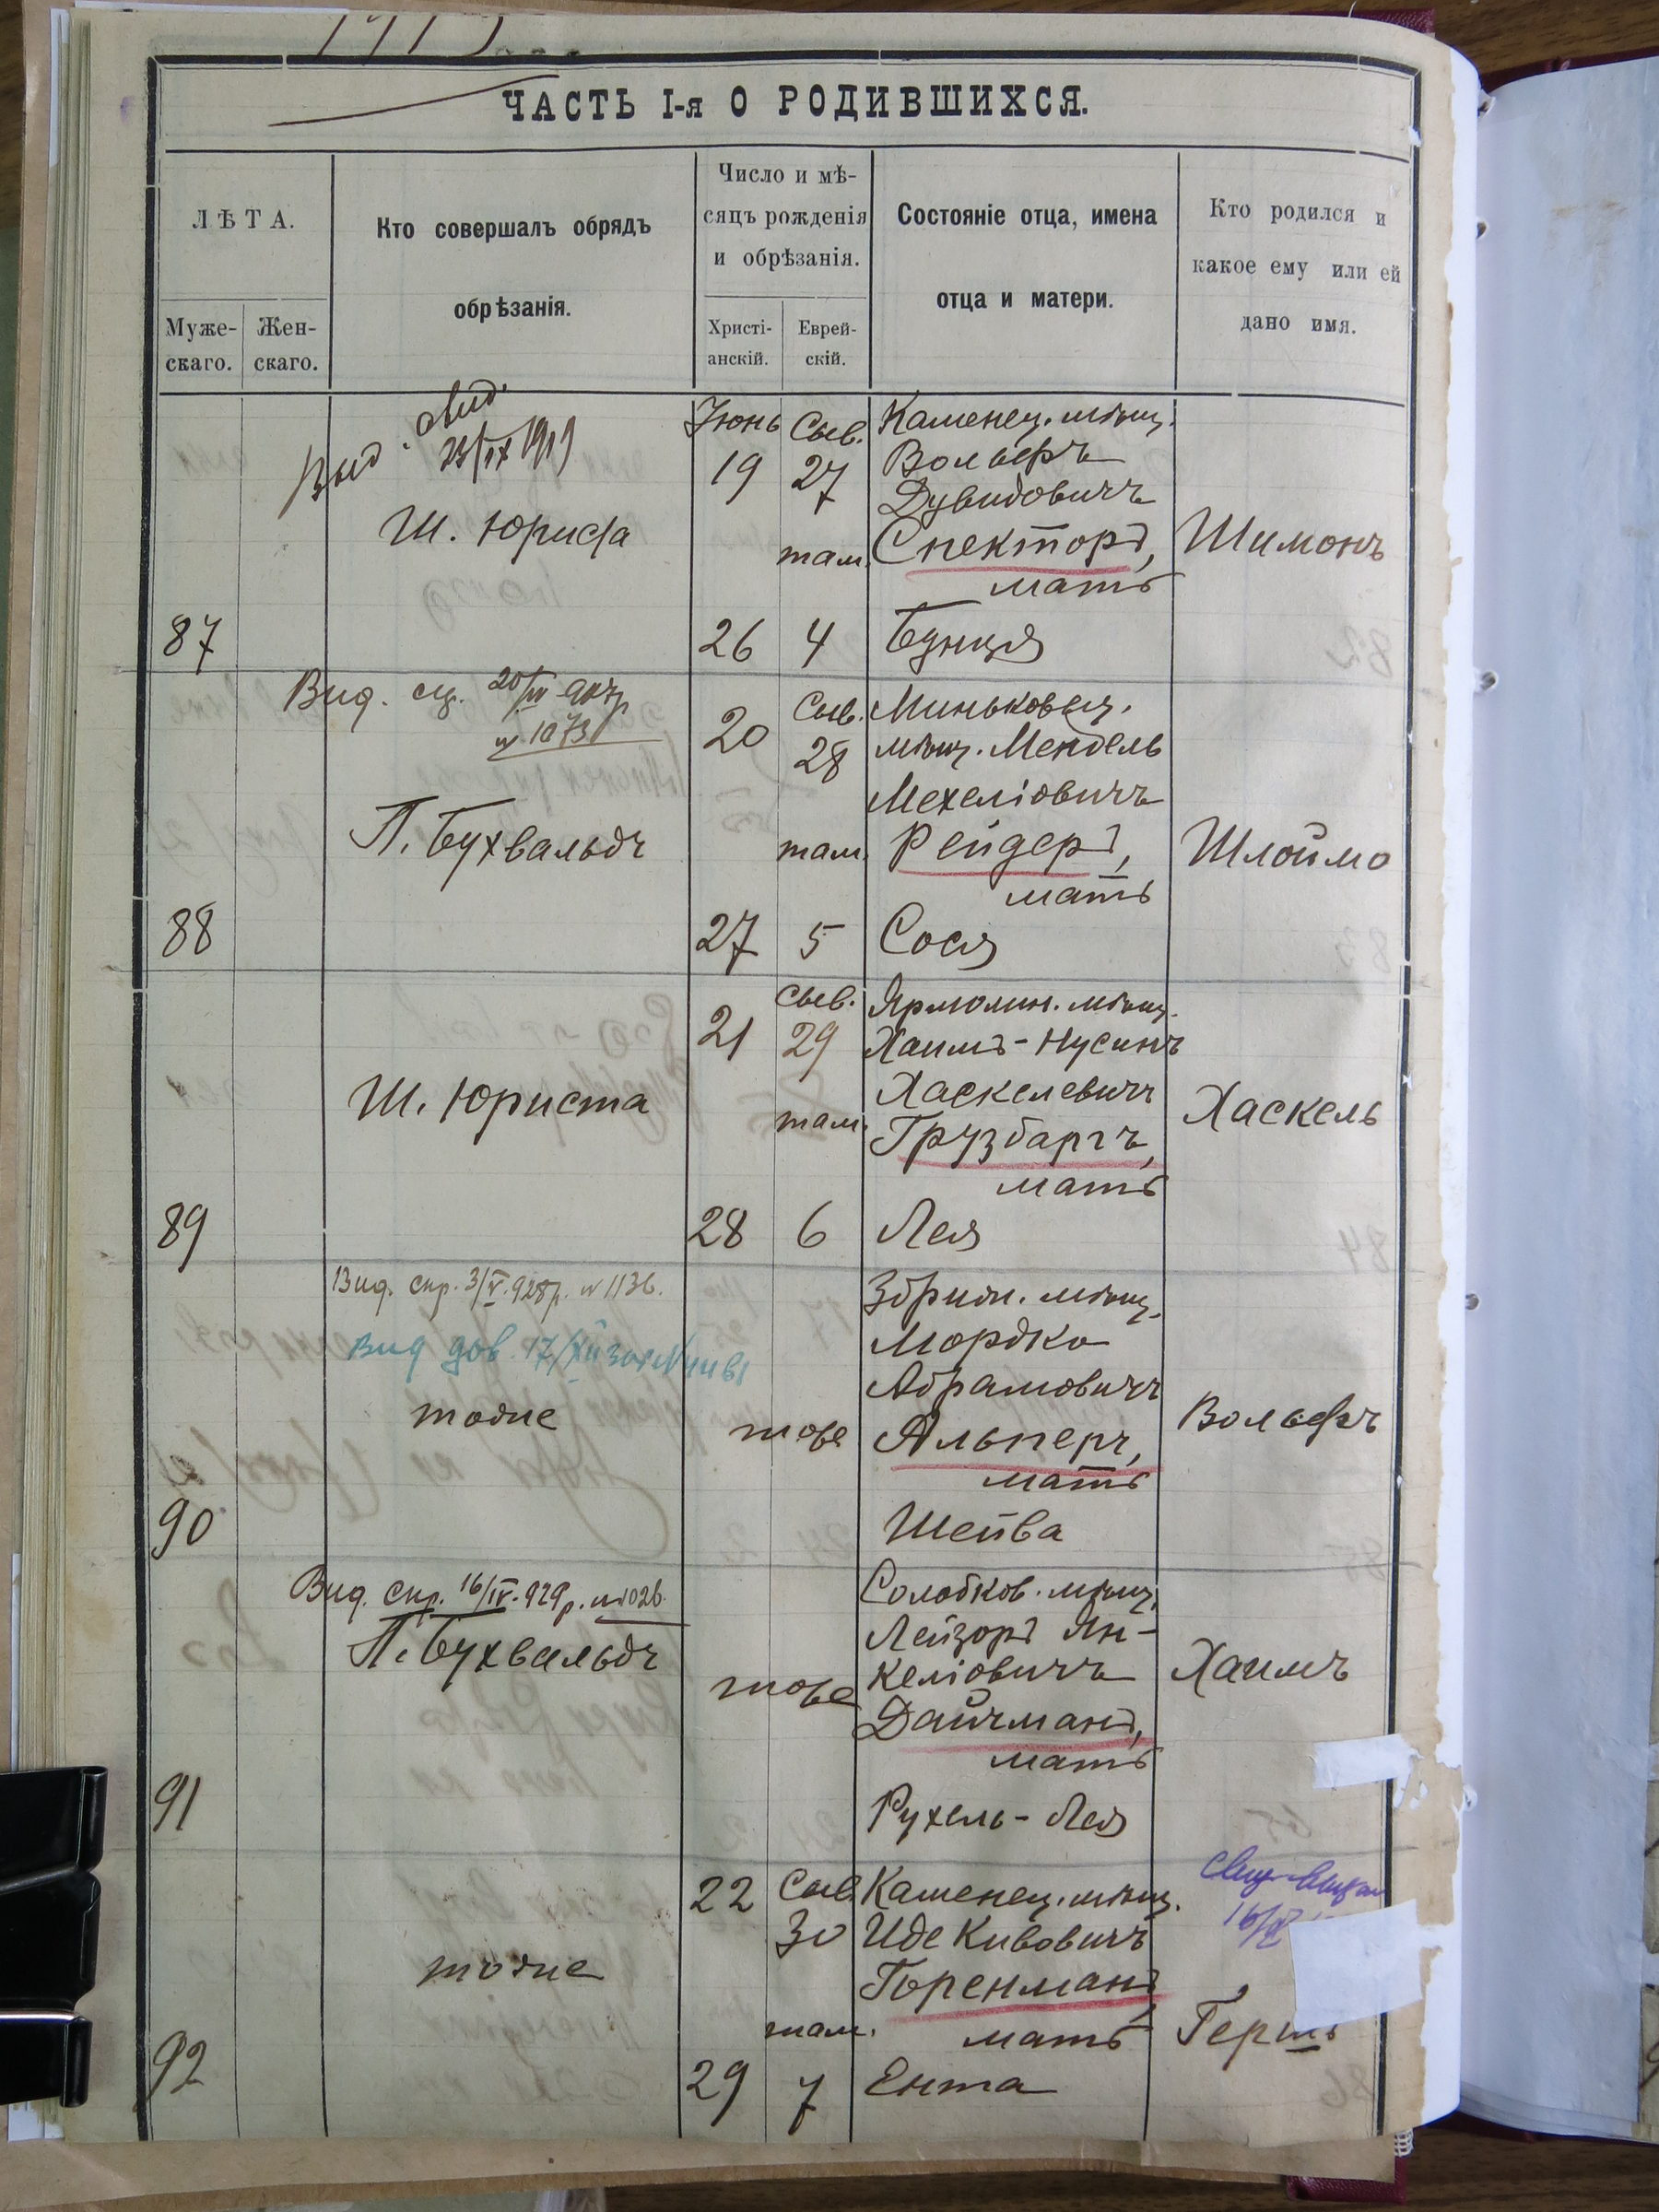 ЧАСТЬ I-я О РОДИВШИХСЯ.
ЛѢТА.
Муже-
скаго.
Жен-
скаго.
Кто совершалъ обрядъ
обрѣзанія.
Число и мѣ-
сяцъ рожденія
и обрѣзанія.
Христі-
анскій.
Еврей-
скій.
Состояніе отца, имена
отца и матери.
Кто родился и
какое ему или ей
дано имя.
Выд. свид.
23/IX 1919
Ш. Юриста
Іюнь
19
Сыв.
27
там.
26
4
Каменец. мѣщ.
Вольфъ
Дувидовичъ
Спекторъ,
мать
Бунця
Шимонъ
87
Вид.
20
Сыв.
28
там.
27
5
П. Бухвальдъ
Миньковец.
мѣщ. Мендель
Мехеліовичъ
Рейдеръ,
мать
Сося
Шлоймо
88
21
Сыв.
29
там.
28
6
Ш. Юриста
Ярмолин. мѣщ.
Хаимъ-Нусинъ
Хаскелевичъ
Грузбаргъ,
мать
Лея
Хаскель
89
Вид. спр. 3/V.928р. N 1136.
Вид дов. 17/XII
тоже
тоже
Збриж. мѣщ.
Мордко
Абрамовичъ
Альперъ,
мать
Шейва
Вольфъ
90
Вид. спр. 16/IV.929р. N 1026.
П. Бухвальдъ
тоже
Солобков. мѣщ.
Лейзоръ Ян-
келіовичъ
Дайчманъ,
мать
Рухель-Лея
Хаимъ
91
тоже
22
Сыв.
30
там.
29
7
Каменец. мѣщ.
Иде Кивовичъ
Горенманъ
мать
Ента
Гершъ
92